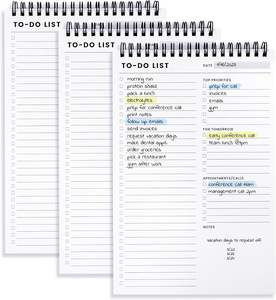 TO-DO LIST
TO-DO LIST
TO-DO LIST
DATE
morning run
protein shake
pack a lunch
electrolytes
prep for conference call
print notes
follow up emails
send invoices
request vacation days
make dental appt
order groceries
pick a restaurant
gym after work
TOP PRIORITIES
prep for call
invoices
emails
gym
FOR TOMORROW
early conference call
team lunch @ 1:30pm
APPOINTMENTS/CALLS
conference call 9am
management call 2pm
NOTES
Vacation days to request off: